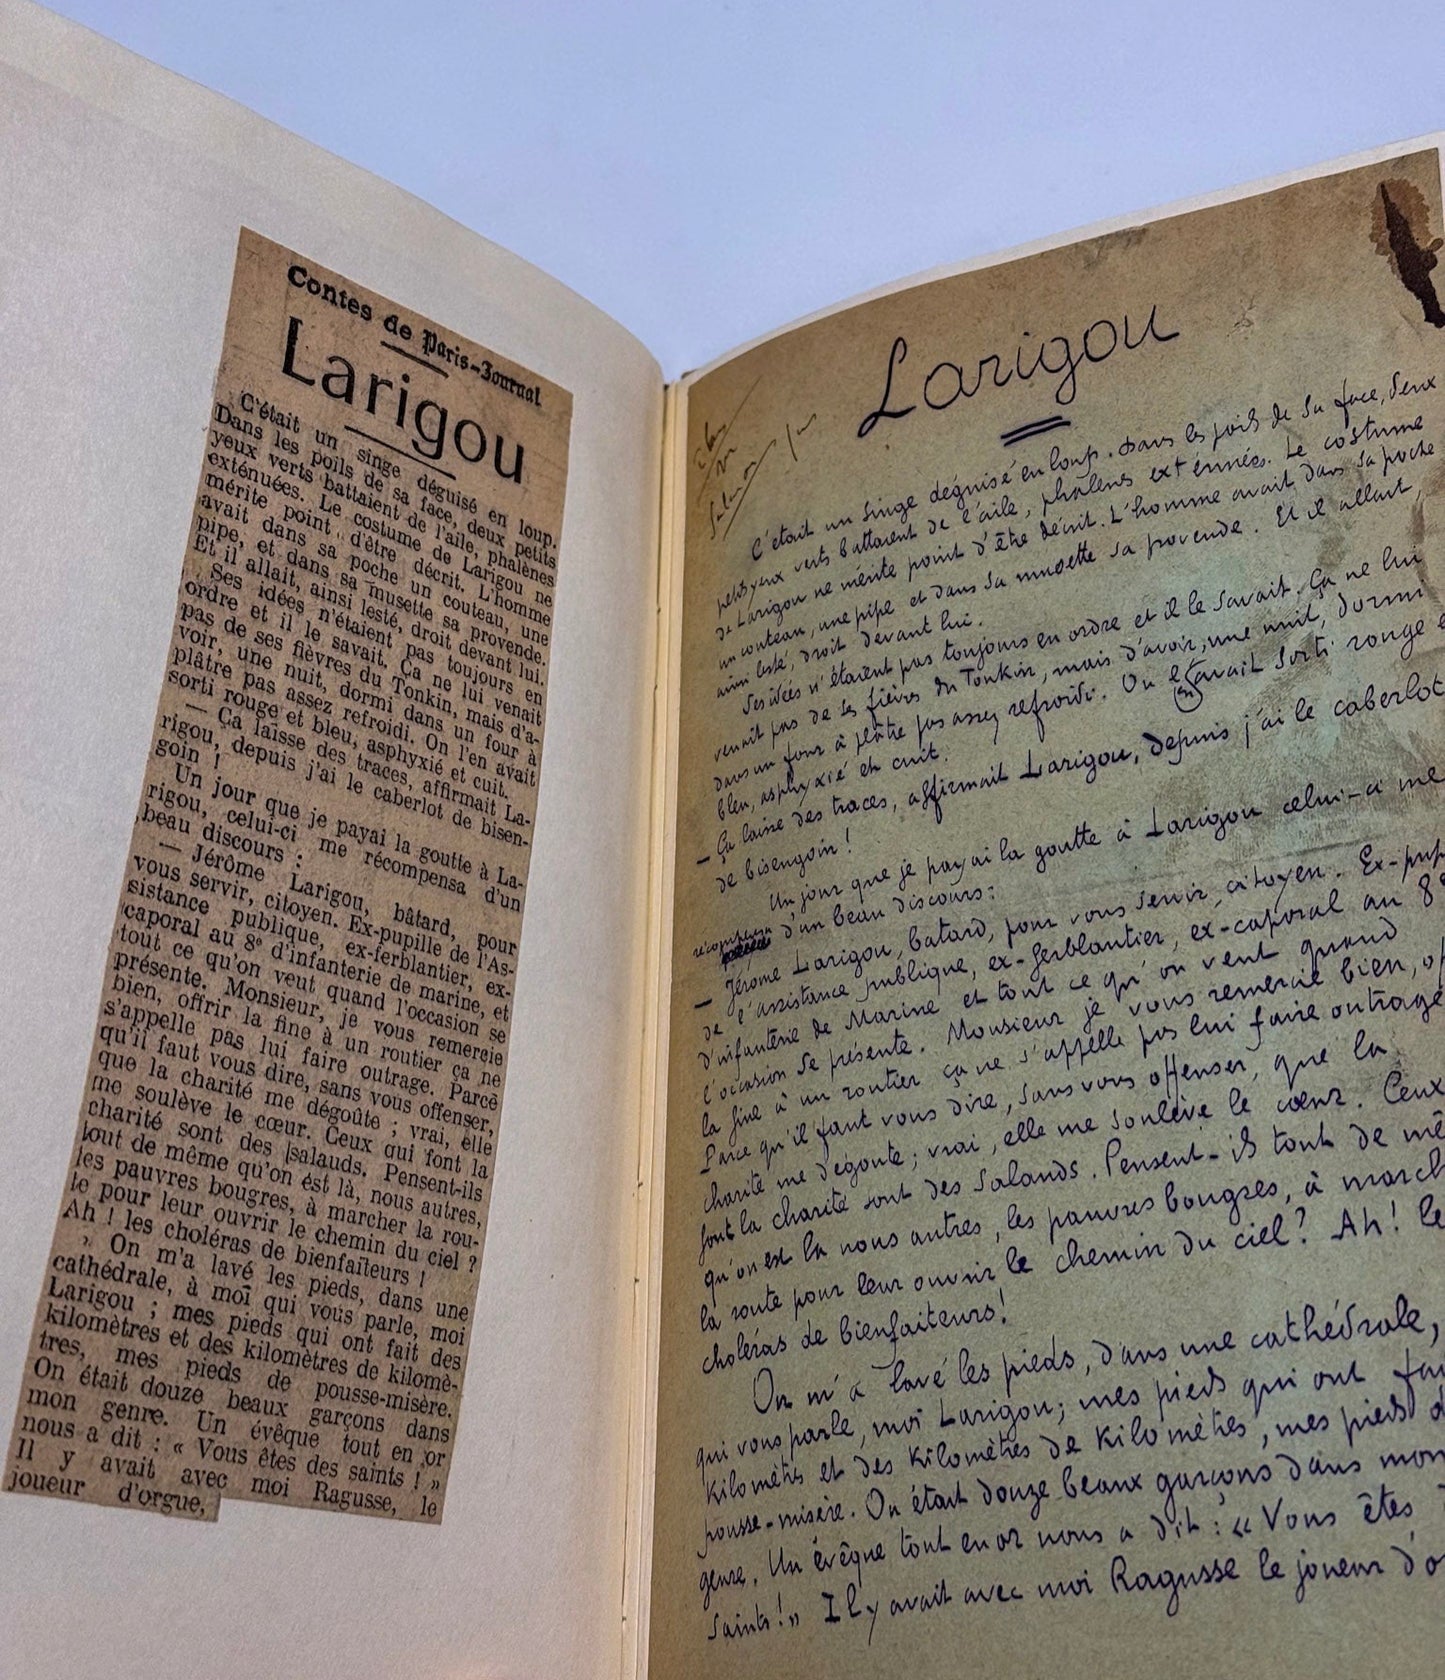 Contes de Paris-Journal
Larigou
C'était un singe déguisé en loup.
Dans les poils de sa face, deux petits
yeux verts battaient de l'aile, phalènes
exténuées. Le costume de Larigou ne
mérite point d'être décrit. L'homme
avait dans sa poche un couteau, une
pipe, et dans sa musette sa provende.
Et il allait, ainsi lesté, droit devant lui.
Ses idées n'étaient pas toujours en
ordre et il le savait. Ça ne lui venait
pas de ses fièvres du Tonkin, mais d'a-
voir, une nuit, dormi dans un four à
plâtre pas assez refroidi. On l'en avait
sorti rouge et bleu, asphyxié et cuit.
— Ça laisse des traces, affirmait La-
rigou, depuis j'ai le caberlot de bisen-
goin !
Un jour que je payai la goutte à La-
rigou, celui-ci me récompensa d'un
beau discours :
— Jérôme Larigou, bâtard, pour
vous servir, citoyen. Ex-pupille de l'As-
sistance publique, ex-ferblantier, ex-
caporal au 8e d'infanterie de marine, et
tout ce qu'on veut quand l'occasion se
présente. Monsieur, je vous remercie
bien, offrir la fine à un routier ça ne
s'appelle pas lui faire outrage. Parce
qu'il faut vous dire, sans vous offenser,
que la charité me dégoûte ; vrai, elle
me soulève le cœur. Ceux qui font la
charité sont des salauds. Pensent-ils
tout de même qu'on est là, nous autres,
les pauvres bougres, à marcher la rou-
te pour leur ouvrir le chemin du ciel ?
Ah ! les choléras de bienfaiteurs !
» On m'a lavé les pieds, dans une
cathédrale, à moi qui vous parle, moi
Larigou ; mes pieds qui ont fait des
kilomètres et des kilomètres de kilomè-
tres, mes pieds de pousse-misère.
On était douze beaux garçons dans
mon genre. Un évêque tout en or
nous a dit : « Vous êtes des saints ! »
Il y avait avec moi Ragusse, le
joueur d'orgue,
Larigou
C'était un singe déguisé en loup. Dans les poils de sa face, deux
petits yeux verts battaient de l'aile, phalènes exténuées. Le costume
de Larigou ne mérite point d'être décrit. L'homme avait dans sa poche
un couteau, une pipe et dans sa musette sa provende. Et il allait,
ainsi lesté, droit devant lui.
Ses idées n'étaient pas toujours en ordre et il le savait. Ça ne lui
venait pas de ses fièvres du Tonkin, mais d'avoir, une nuit, dormi
dans un four à plâtre pas assez refroidi. On l'en avait sorti rouge e
bleu, asphyxié et cuit.
— Ça laisse des traces, affirmait Larigou, depuis j'ai le caberlot
de bisengoin !
Un jour que je payai la goutte à Larigou celui-ci me
récompensa d'un beau discours :
— Jérôme Larigou, batard, pour vous servir, citoyen. Ex-pup
de l'assistance publique, ex-ferblantier, ex-caporal au 8e
d'infanterie de Marine et tout ce qu'on veut quand
l'occasion se présente. Monsieur je vous remercie bien, of
la fine à un routier ça ne s'appelle pas lui faire outrage
Parce qu'il faut vous dire, sans vous offenser, que la
charité me dégoute ; vrai, elle me soulève le cœur. Ceux
font la charité sont des salauds. Pensent-ils tout de mê
qu'on est là nous autres, les pauvres bougres, à march
la route pour leur ouvrir le chemin du ciel ? Ah ! le
choléras de bienfaiteurs !
On m'a lavé les pieds, dans une cathédrale,
qui vous parle, moi Larigou ; mes pieds qui ont fai
kilomètres et des kilomètres de kilomètres, mes pieds d
pousse-misère. On était douze beaux garçons dans mon
genre. Un évêque tout en or nous a dit : « Vous êtes
saints ! » Il y avait avec moi Ragusse le joueur d'o